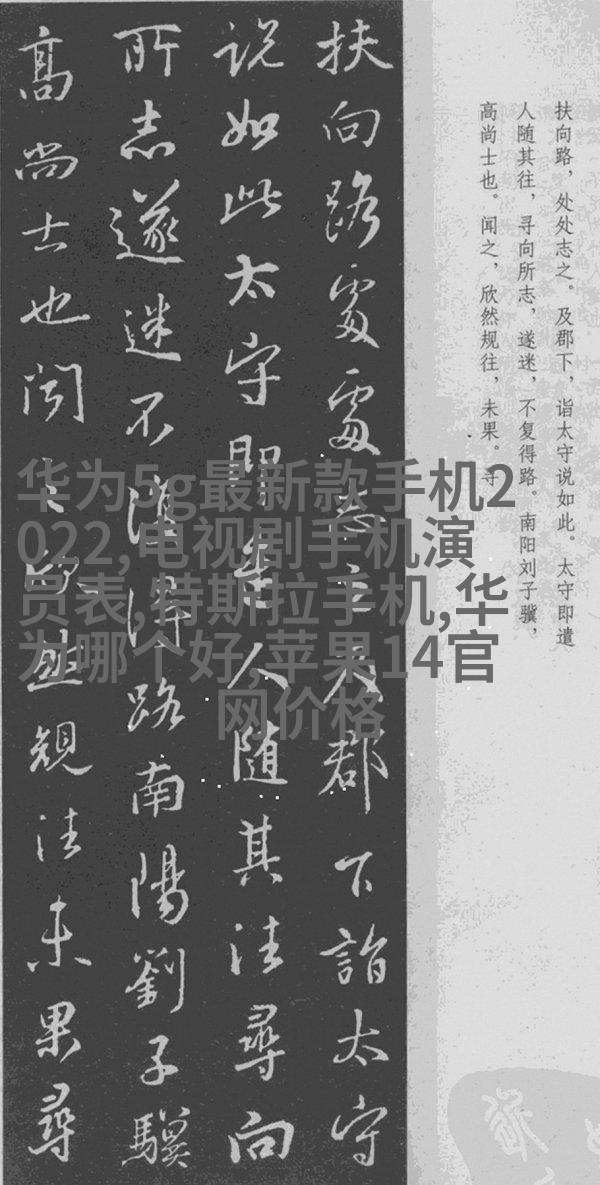 扶向路，处处志之。及郡下，诣太守说如此。太守即遣
人随其往，寻向所志，遂迷，不复得路。南阳刘子骥，
高尚士也。闻之，欣然规往，未果。寻
扶向路處處志之及郡下詣太守
説如此太守即遣人随其往尋向
所志遂迷不復得路南陽劉子驥
高尚士也闻之欣然規往未果尋
华为5g最新款手机2
022,电视剧手机演
员表,特斯拉手机,华
为哪个好,苹果14官
网价格